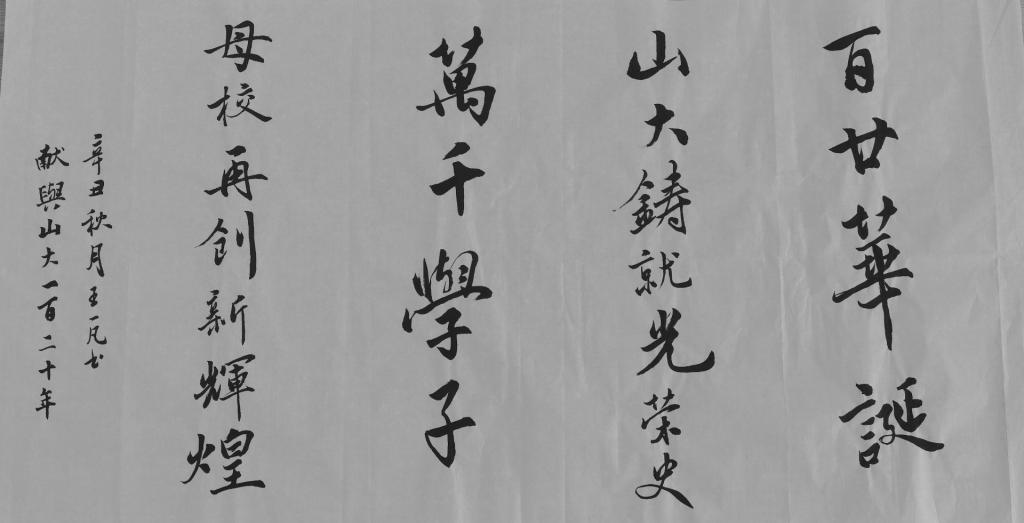 百廿華誕
山大鑄就光荣史
萬千學子
母校再创新輝煌
辛丑秋月王一凡书
献與山大一百二十年